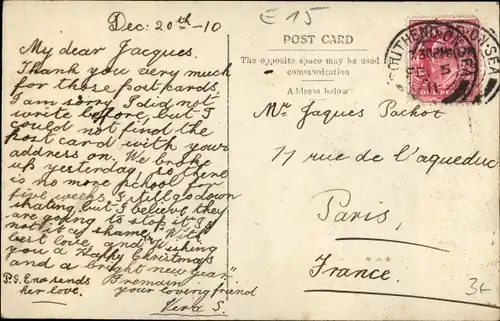 Dec: 20th -10
My dear Jacques.
Thank you very much
for those post cards.
I am sorry I did not
write before, but I
could not find the
post card with your
address on. We broke
up yesterday, so there
is no more school for
five weeks. I still go down
skating, but I believe they
are going to stop it. Is
not it a shame. With
best love, and Wishing
you "A Happy Christmas
and a bright new year"
I remain
your loving friend
Vera S.
P.S. Ena sends
her love.
£ 15
POST CARD
The opposite space may be used for
communication
Address below
SOUTHEND-ON-SEA
ONE PENNY
Mr Jaques Pachot
77 rue de l'aqueduc
Paris,
France.
3€